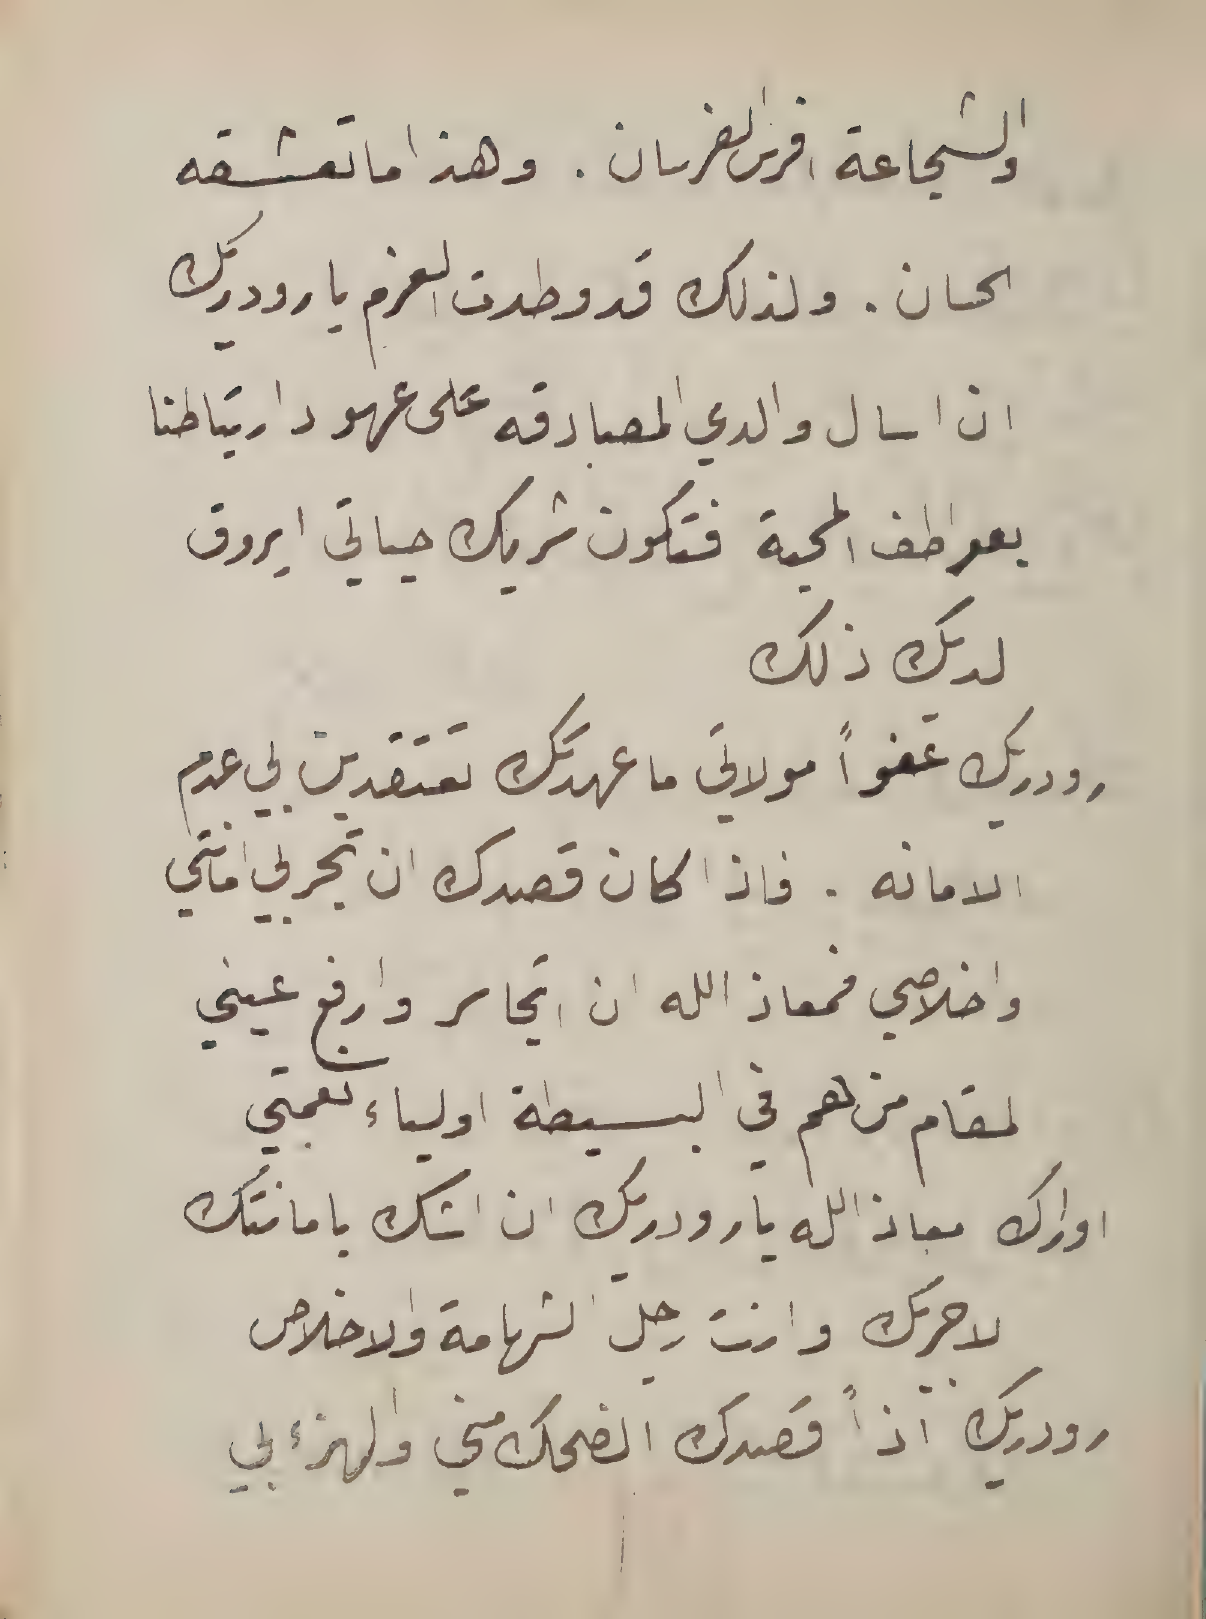 والشجاعة افرس الفرسان . وهذا ما تعشقه
الحسان . ولذلك قد وطدت العزم يا رودريك
ان اسال والدي المصادقه على عهود ارتباطنا
بعواطف المحبة فتكون شريك حياتي ايروق
لديك ذلك
رودريك عفواً مولاتي ما عهدتك تعتقدين بي عدم
الامانه . فاذا كان قصدك ان تجربي امانتي
واخلاصي فمعاذ الله ان اتجاسر وارفع عيني
لمقام من هم في البسيطة اولياء نعمتي
اوراك معاذ الله يا رودريك ان اشك بامانتك
لاجربك وانت رجل الشهامة والاخلاص
رودريك اذاً قصدك الضحك مني والهزء بي